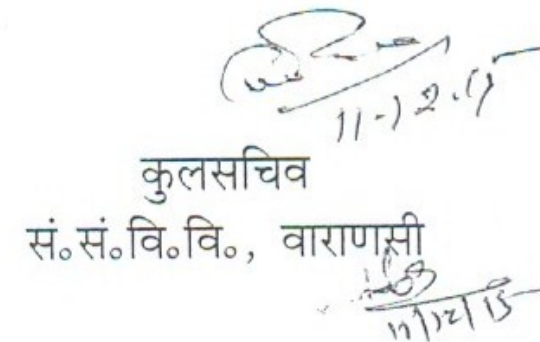 11-12.15
कुलसचिव
सं.सं.वि.वि., वाराणसी
11/12/15